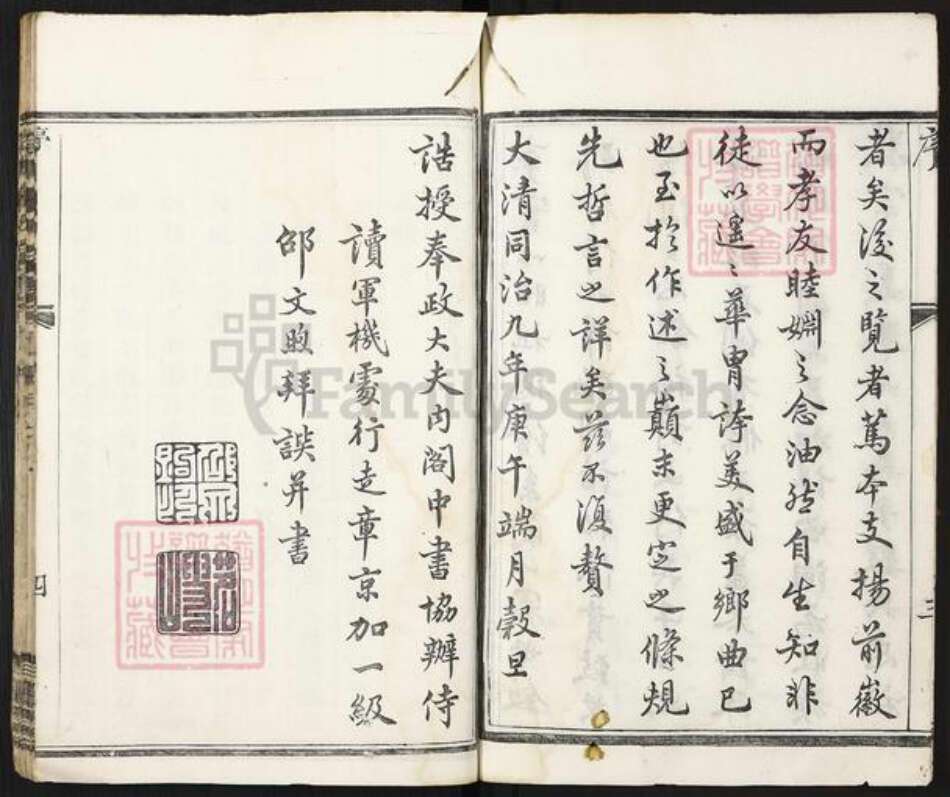 序
者矣後之覽者篤本支揚前徽
而孝友睦婣之念油然自生知非
徒以遙遙華胄誇美盛于鄉曲已
也至於作述之巔末更定之條規
先哲言之詳矣茲不復贅
大清同治九年庚午端月穀旦
三
誥授奉政大夫內閣中書協辦侍
讀軍機處行走章京加一級
邵文煦拜譔并書
序
四
FamilySearch